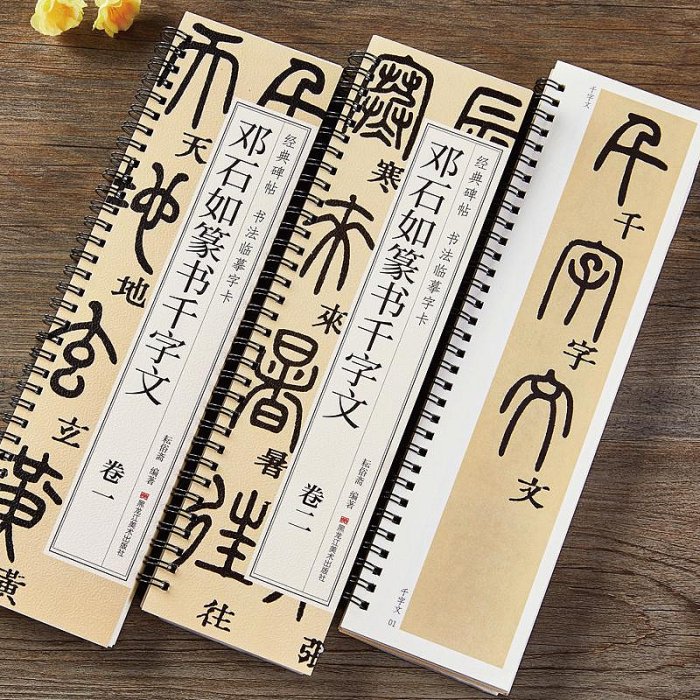 天
地
玄
黃
经典碑帖 书法临摹字卡
邓石如篆书千字文
卷一
耘俗斋 编著
黑龙江美术出版社
寒
來
暑
往
張
经典碑帖 书法临摹字卡
邓石如篆书千字文
卷二
耘俗斋 编著
黑龙江美术出版社
千字文
千
字
文
千字文 01